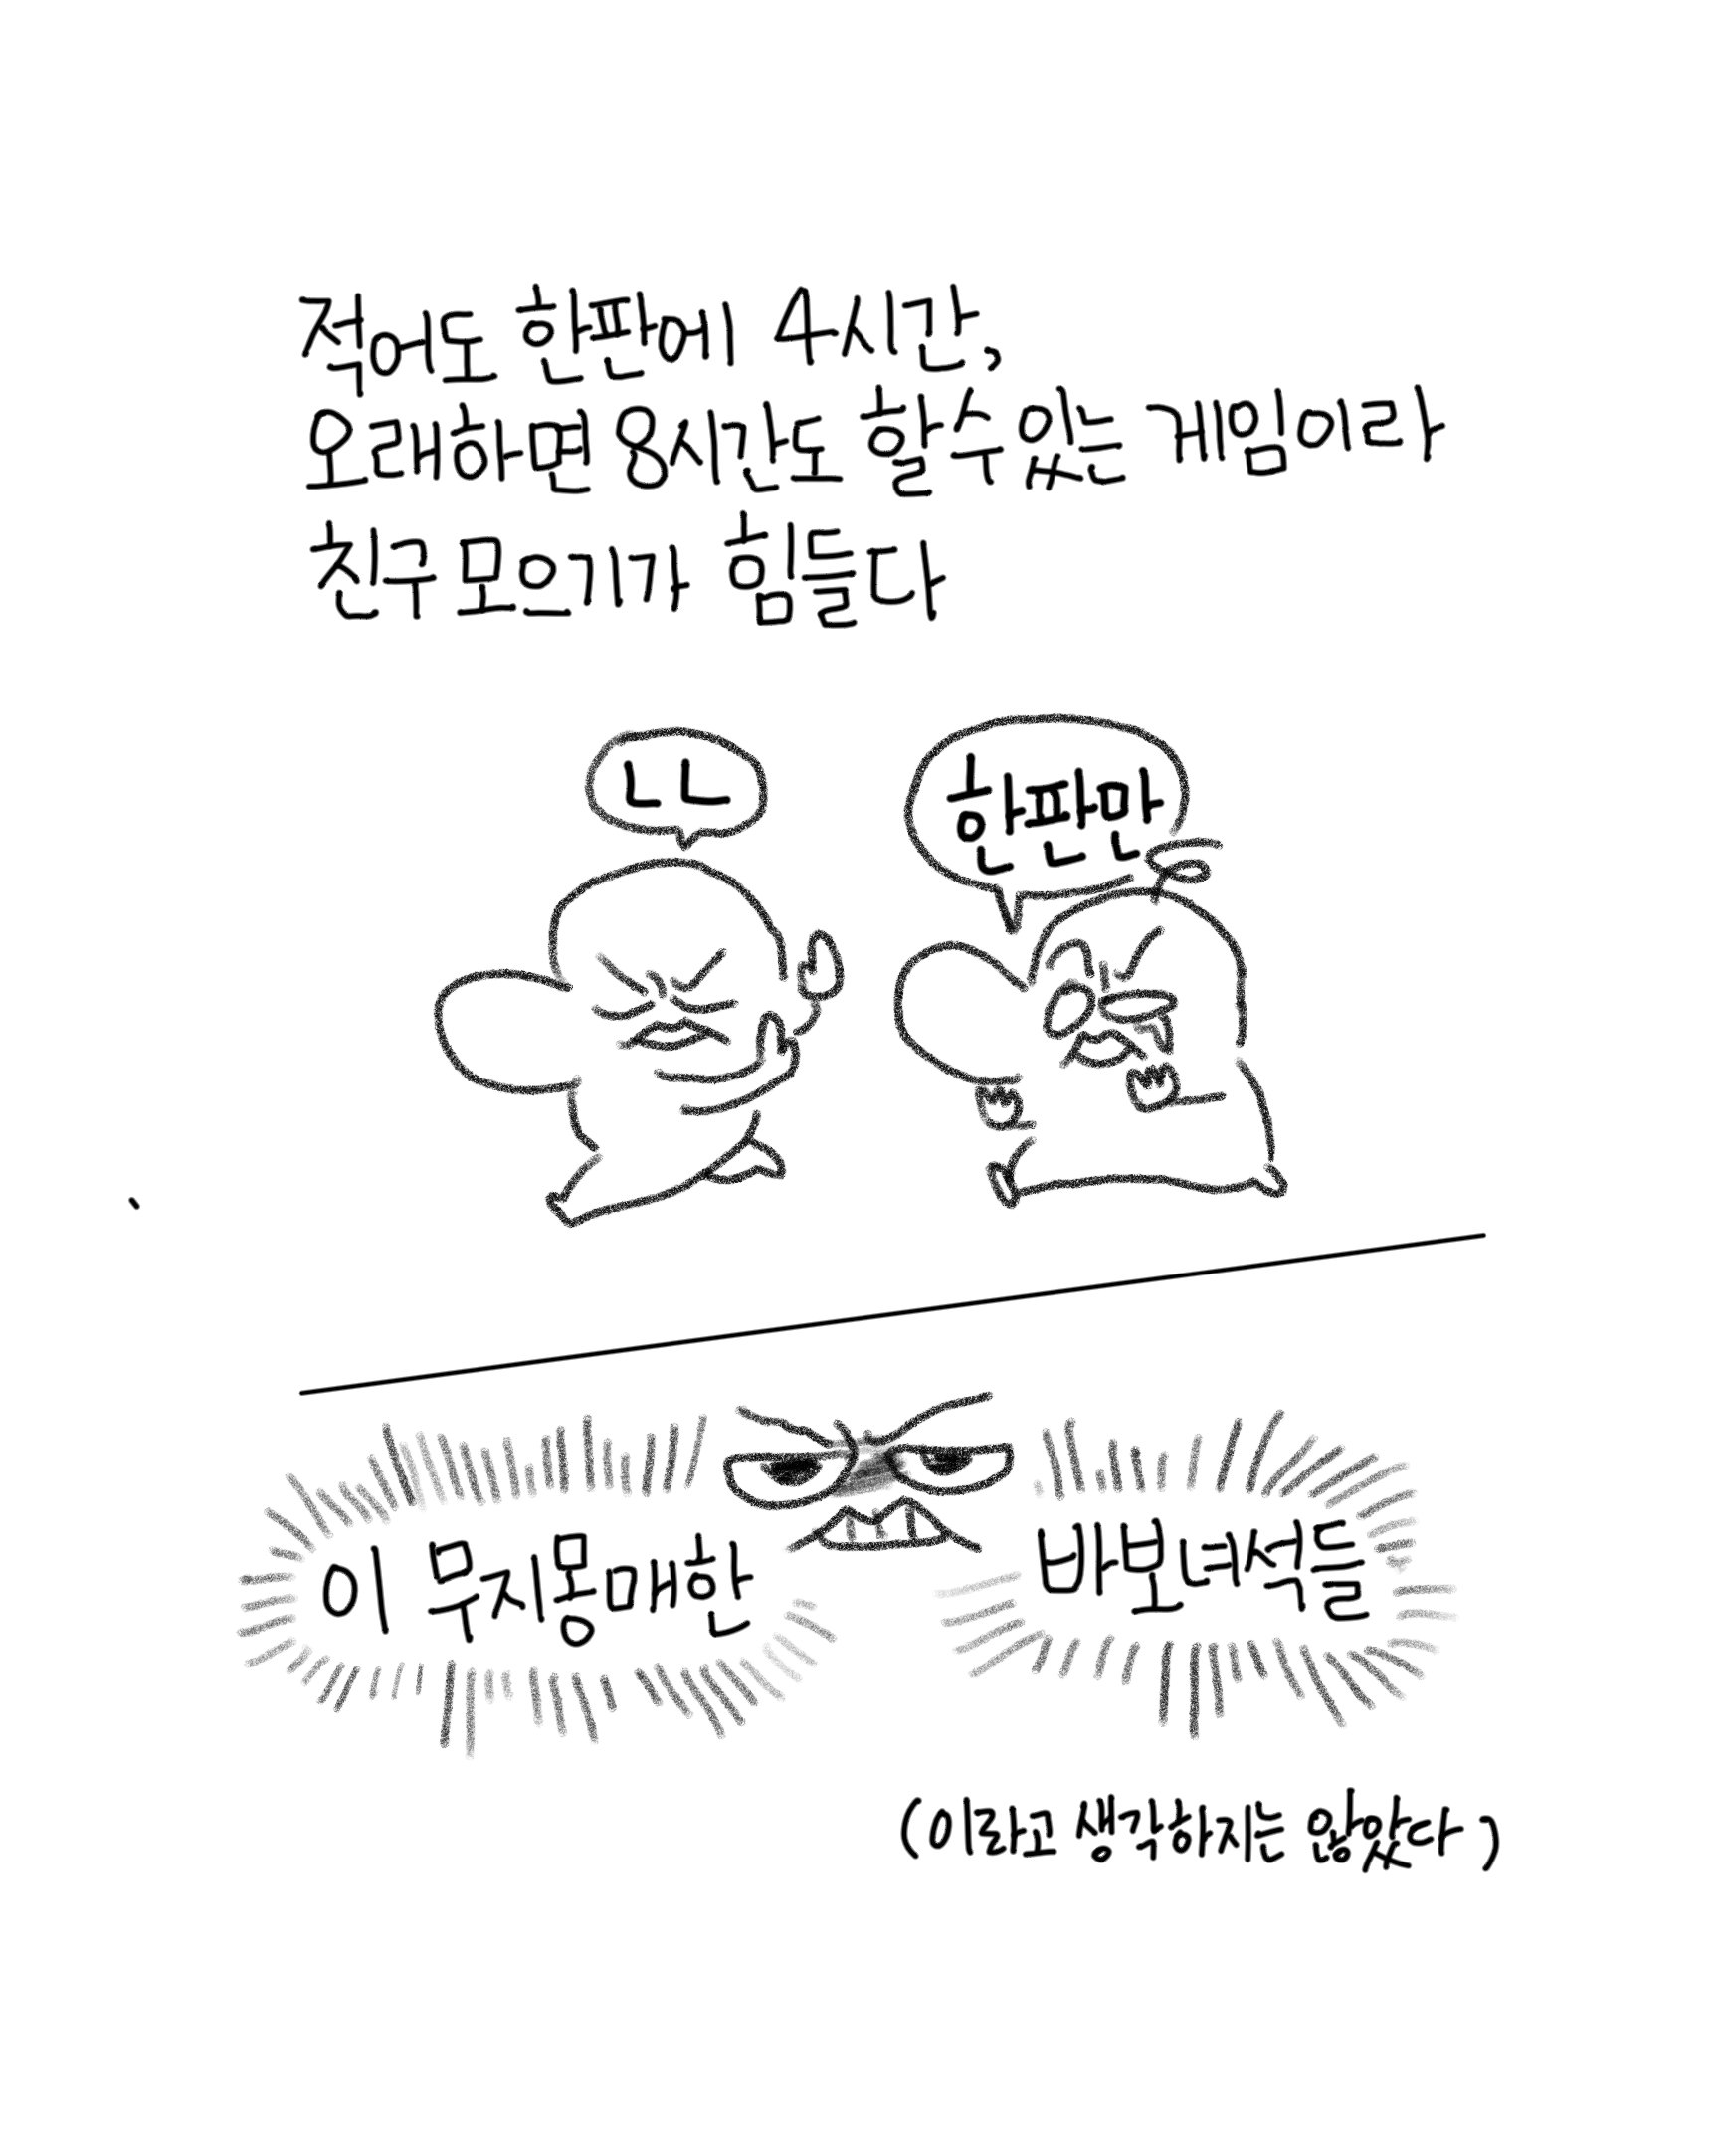 적어도 한판에 4시간,
오래하면 8시간도 할수있는 게임이라
친구 모으기가 힘들다
ㄴㄴ
한판만
이 무지몽매한
바보녀석들
(이라고 생각하지는 않았다)